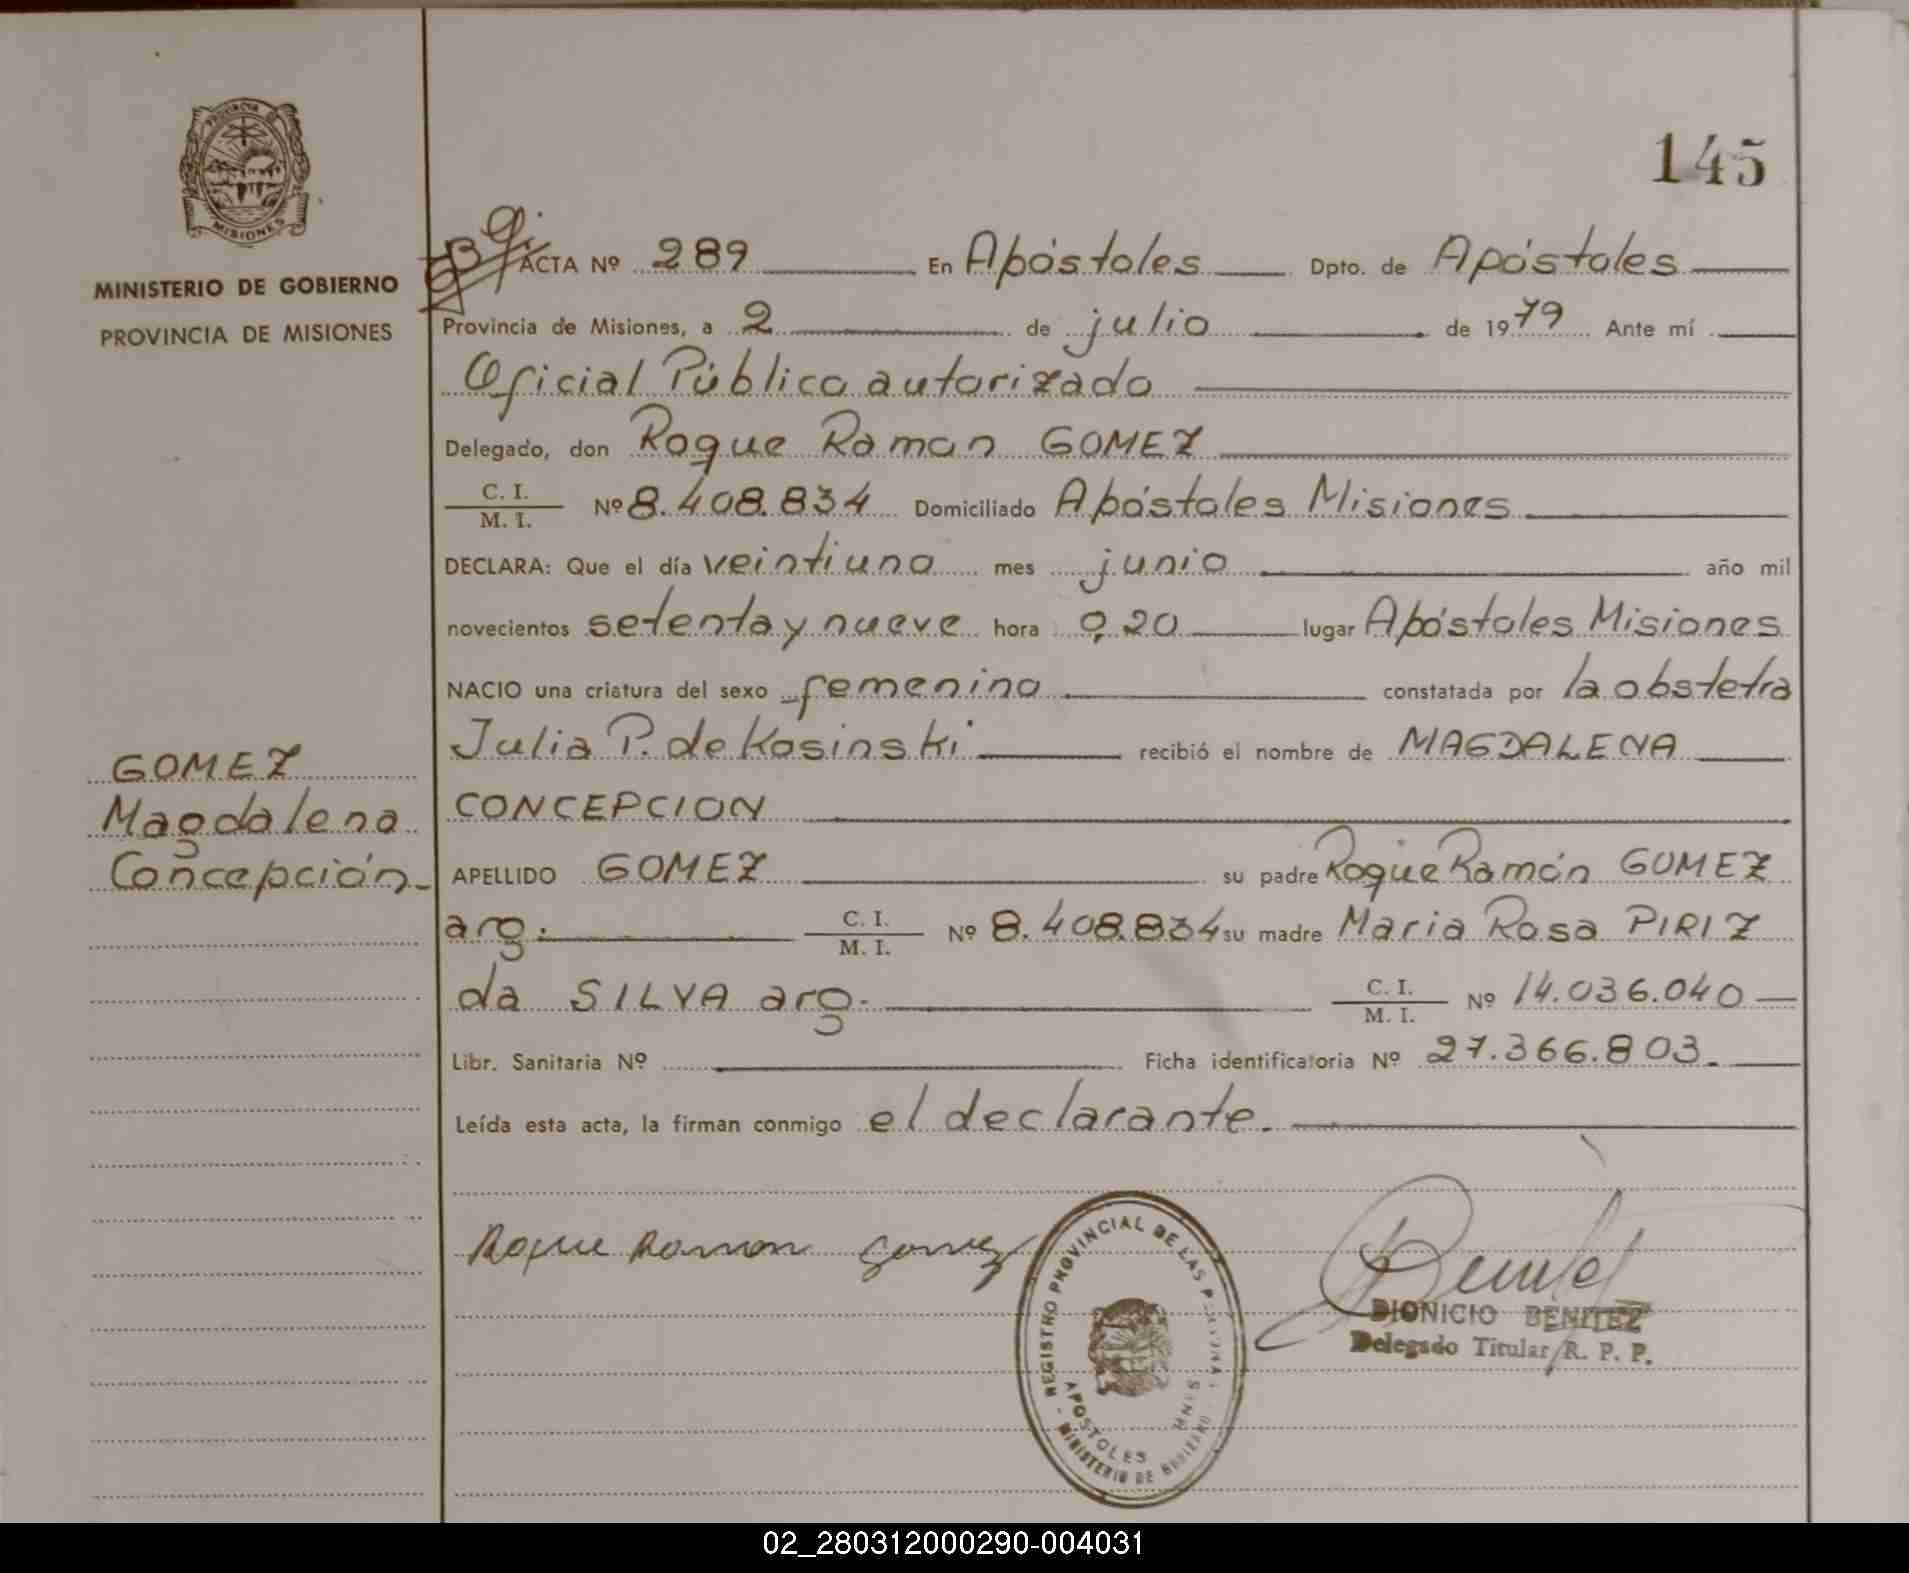 145
PROVINCIA DE
MISIONES
MINISTERIO DE GOBIERNO
PROVINCIA DE MISIONES
ACTA Nº 289 En Apóstoles Dpto. de Apóstoles
Provincia de Misiones, a 2 de julio de 1979 Ante mí
Oficial Público autorizado
Delegado, don Roque Ramon GOMEZ
C. I.
M. I. Nº 8.408.834 Domiciliado Apóstoles Misiones
DECLARA: Que el día veintiuno mes junio año mil
novecientos setenta y nueve hora 0,20 lugar Apóstoles Misiones
NACIO una criatura del sexo femenino constatada por la obstetra
Julia P. de Kosinski recibió el nombre de MAGDALENA
CONCEPCION
GOMEZ
Magdalena
Concepción
APELLIDO GOMEZ su padre Roque Ramón GOMEZ
arg. C. I.
M. I. Nº 8.408.834 su madre Maria Rosa PIRIZ
da SILVA arg. C. I.
M. I. Nº 14.036.040
Libr. Sanitaria Nº Ficha identificatoria Nº 27.366.803.
Leída esta acta, la firman conmigo el declarante.
Roque Ramon Gomez
REGISTRO PROVINCIAL DE LAS
APOSTOLES MNES
MINISTERIO DE GOBIERNO
Benitez
DIONICIO BENITEZ
Delegado Titular R. P. P.
02_280312000290-004031